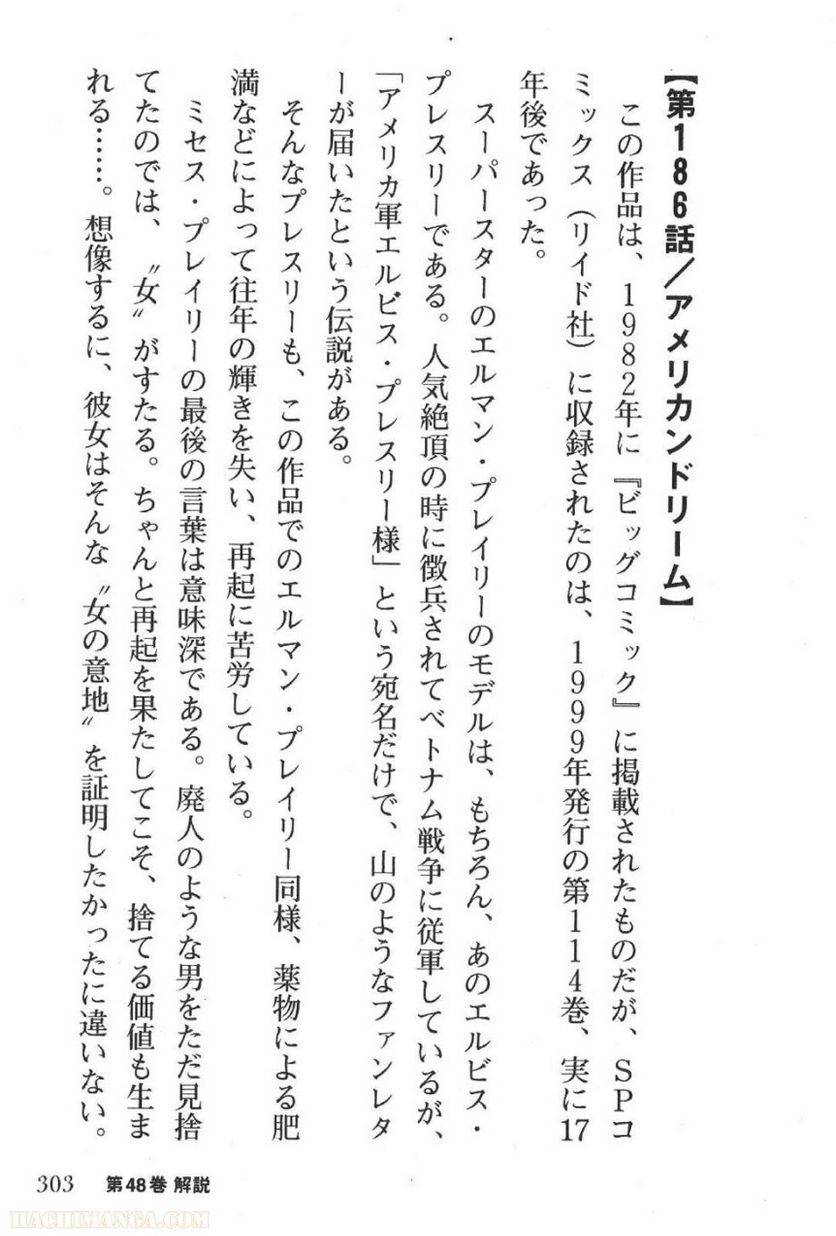 【第186話／アメリカンドリーム】
この作品は、1982年に『ビッグコミック』に掲載されたものだが、SPコ
ミックス（リイド社）に収録されたのは、1999年発行の第114巻、実に17
年後であった。
スーパースターのエルマン・プレイリーのモデルは、もちろん、あのエルビス・
プレスリーである。人気絶頂の時に徴兵されてベトナム戦争に従軍しているが、
「アメリカ軍エルビス・プレスリー様」という宛名だけで、山のようなファンレタ
ーが届いたという伝説がある。
そんなプレスリーも、この作品でのエルマン・プレイリー同様、薬物による肥
満などによって往年の輝きを失い、再起に苦労している。
ミセス・プレイリーの最後の言葉は意味深である。廃人のような男をただ見捨
てたのでは、〝女〟がすたる。ちゃんと再起を果たしてこそ、捨てる価値も生ま
れる……。想像するに、彼女はそんな〝女の意地〟を証明したかったに違いない。
303 第48巻 解説
HACHIMANGA.COM